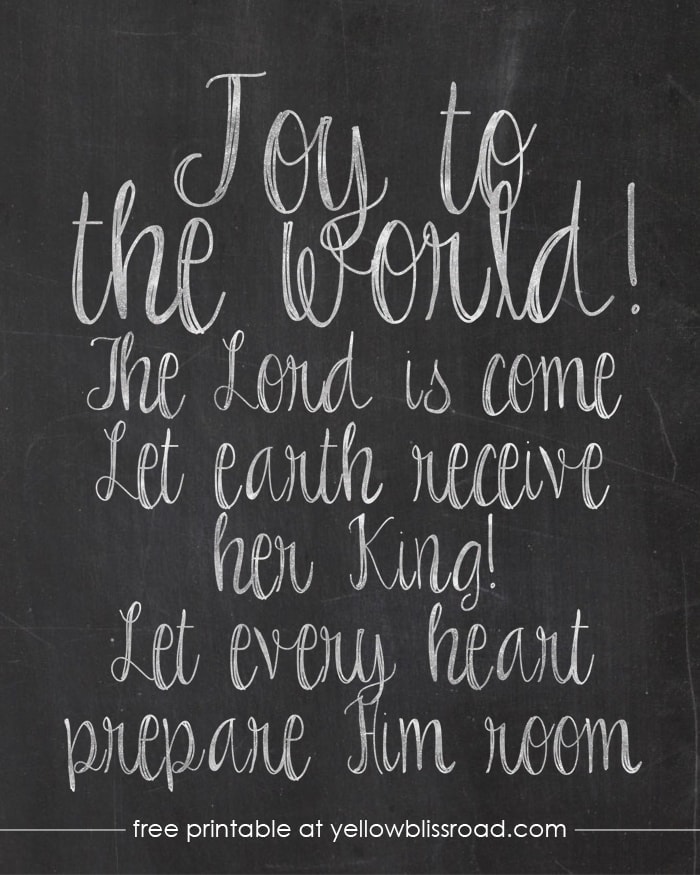 Joy to
the world!
The Lord is come
Let earth receive
her King!
Let every heart
prepare Him room
free printable at yellowblissroad.com